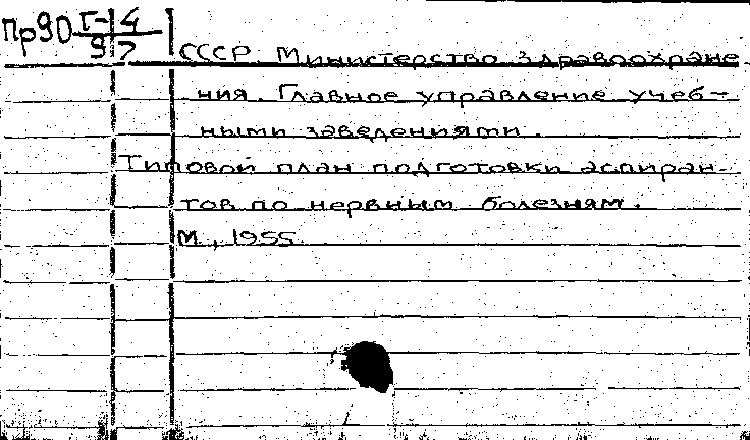 Пр90 Г-4
97
СССР Министерство здравоохране
ния. Главное управление учеб-
ными заведениями.
Типовой план подготовки аспиран-
тов по нервным болезням.
М., 1955